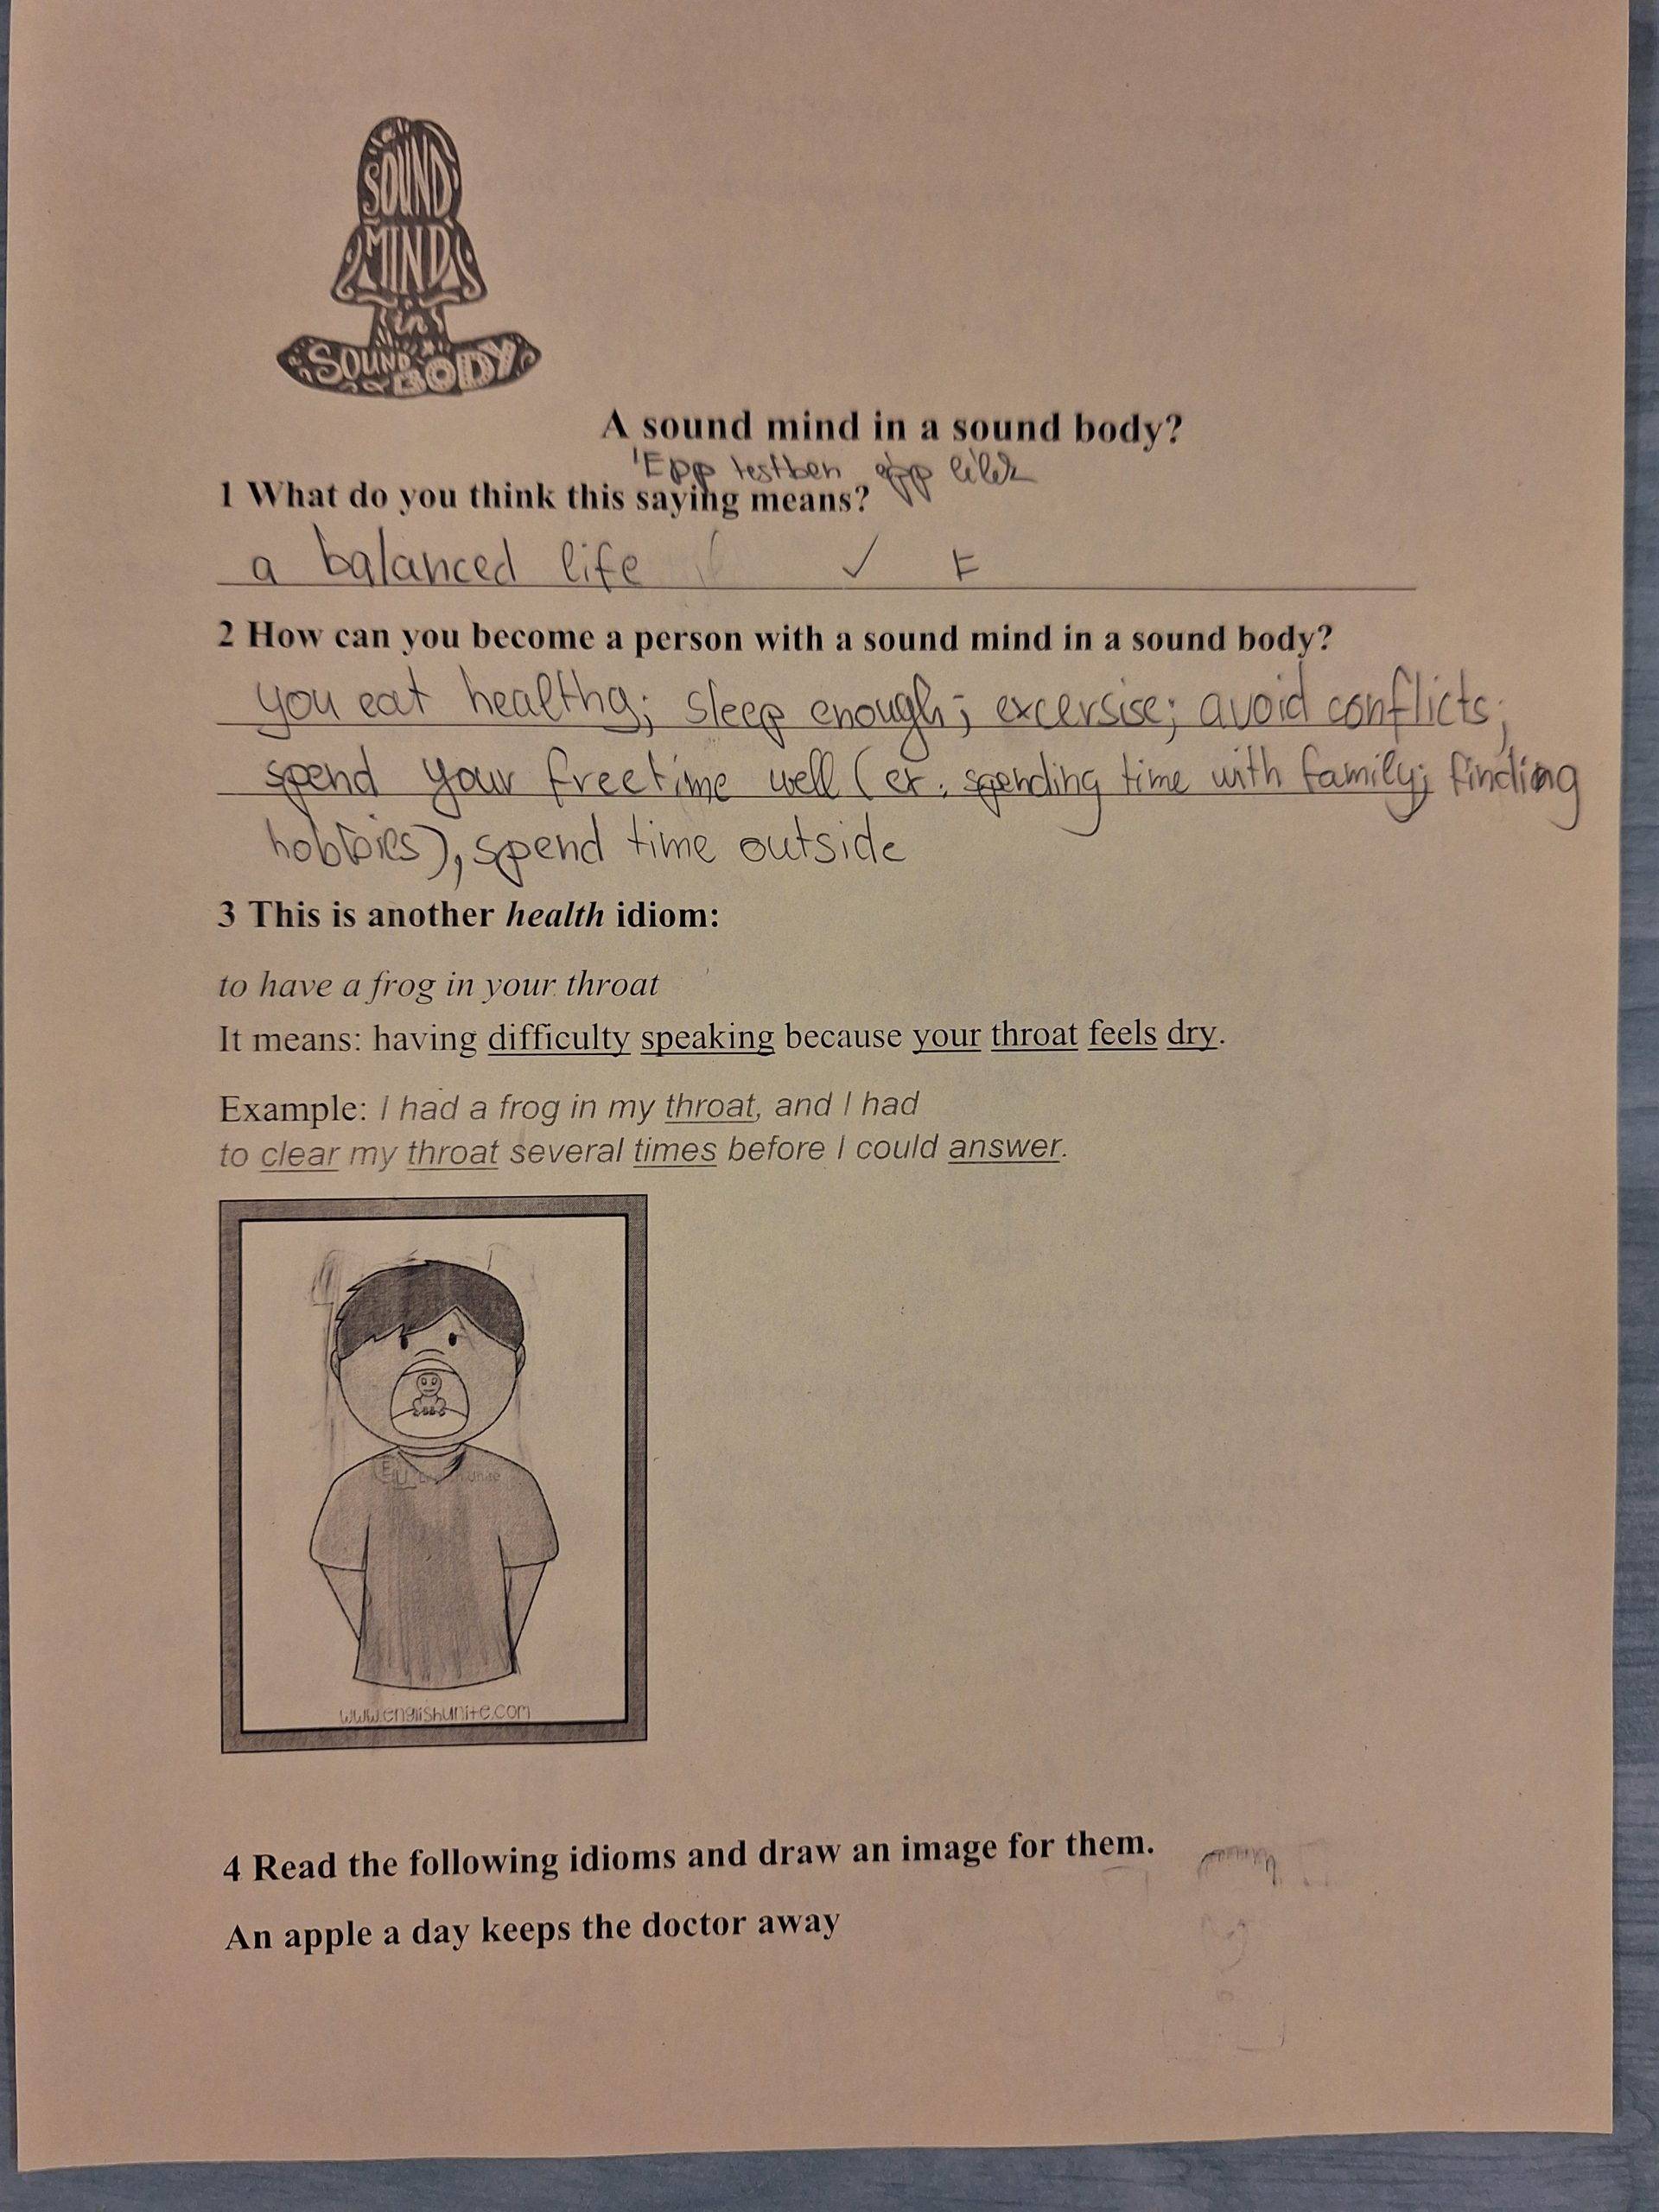 SOUND
MIND
in a
SOUND
BODY
A sound mind in a sound body?
'Epp testben épp lélek
1 What do you think this saying means?
a balanced life ✓
2 How can you become a person with a sound mind in a sound body?
you eat healthy; sleep enough; excersise; avoid conflicts;
spend your freetime well (ex. spending time with family; finding
hobbies), spend time outside
3 This is another health idiom:
to have a frog in your throat
It means: having difficulty speaking because your throat feels dry.
Example: I had a frog in my throat, and I had
to clear my throat several times before I could answer.
www.englishunite.com
4 Read the following idioms and draw an image for them.
An apple a day keeps the doctor away